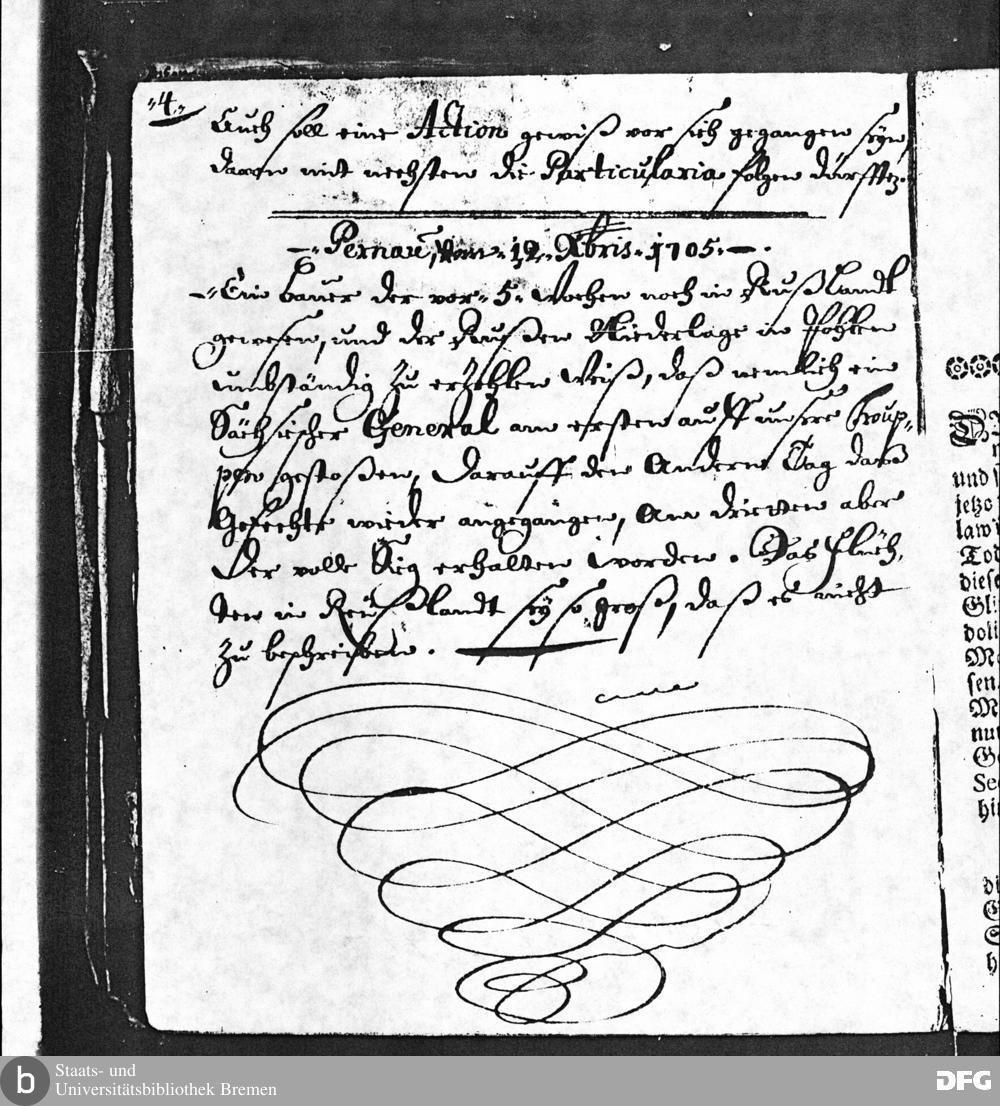 "4."
Auch soll eine Action gewiß vor sich gegangen seyn,
davon mit nechsten die Particularia folgen dörfften.
Pernau, vom 12. Xbris. 1705.
Ein bauer der vor 5. Wochen noch in Rußlandt
gewesen, und der Rußen Niederlage in Pohlen
umbständig zu erzehlen weiß, daß nemblich ein
Sächsischer General am ersten auff unsre Troup-
pen gestoßen, darauff den Andern Tag daß
Gefechte wieder angegangen, Am dritten aber
Der volle Sieg erhalten worden. Das Flüch-
ten in Reußlandt sey so groß, daß es nicht
zu beschreiben.
und
jetzo
law
Tod
diese
Gli
doli
sen.
nur
Ge
Se
hin
b
Staats- und
Universitätsbibliothek Bremen
DFG